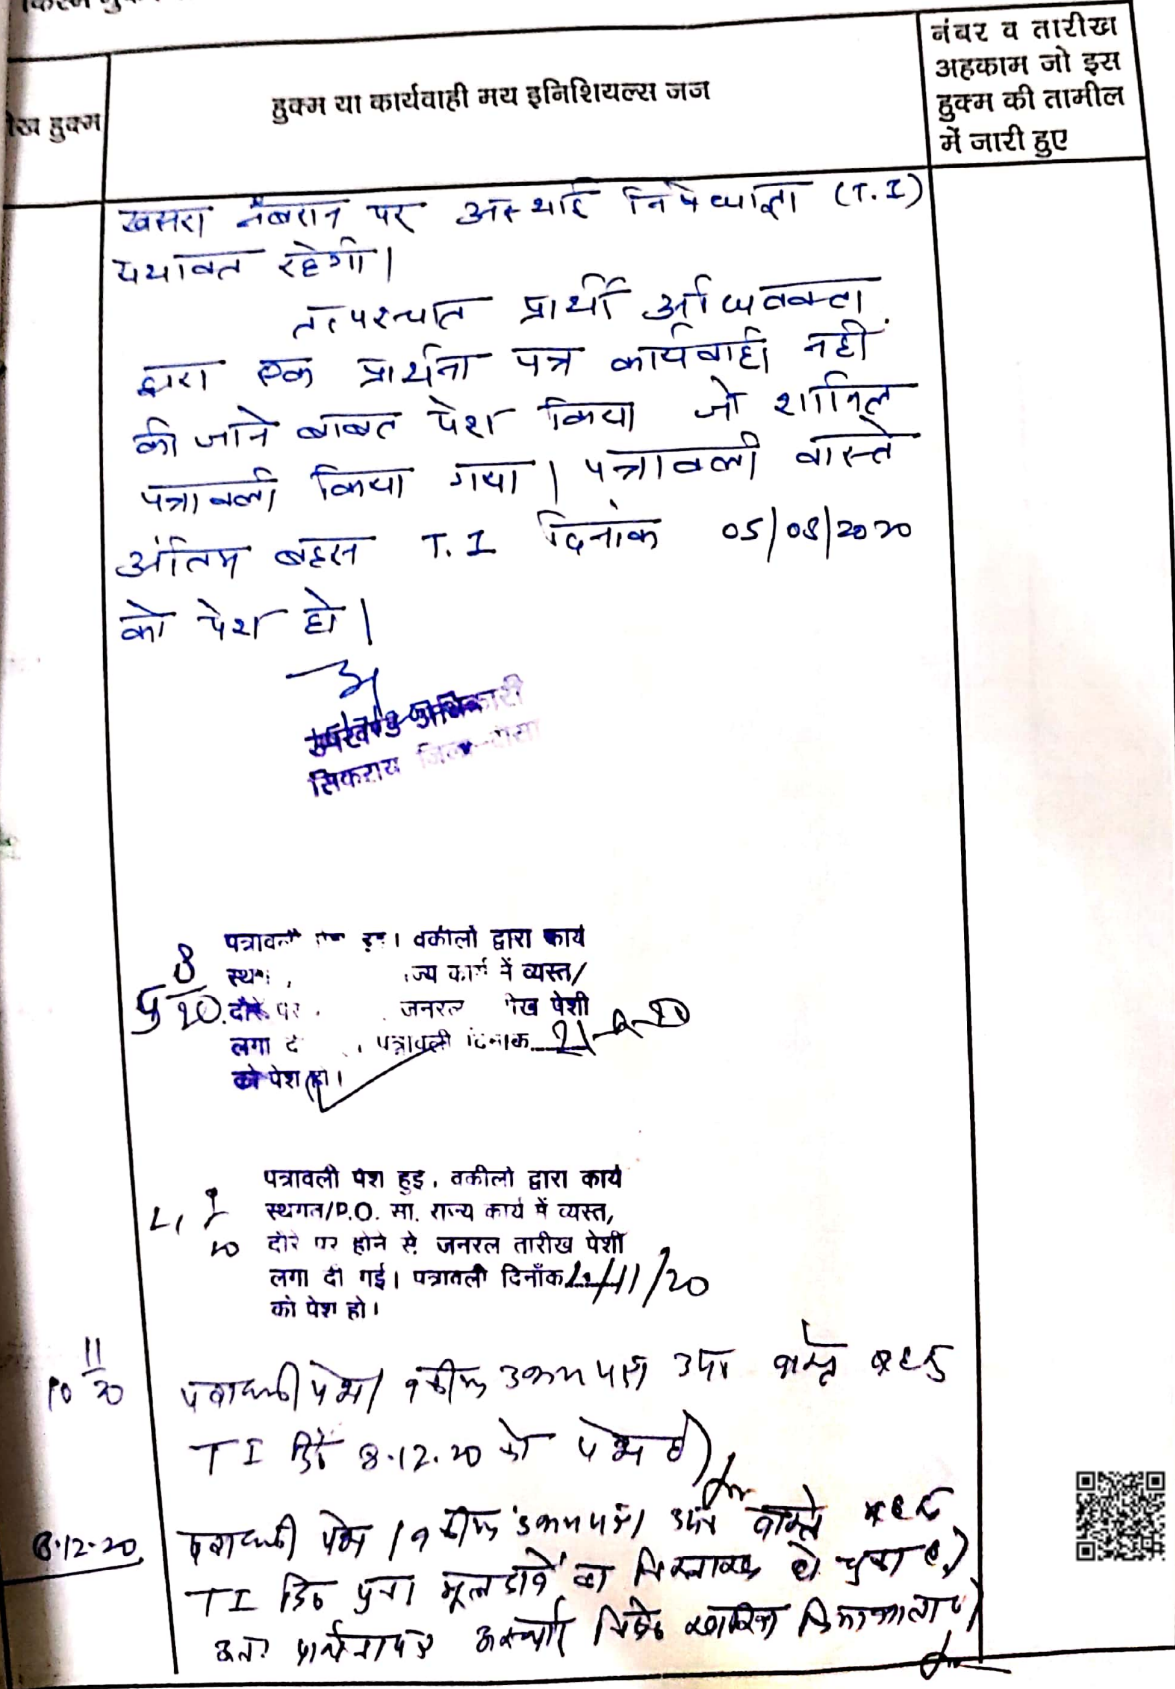 नंबर व तारीख
अहकाम जो इस
हुक्म की तामील
में जारी हुए
हुक्म या कार्यवाही मय इनिशियल्स जज
हुक्म
खसरा नंबरान पर अस्थाई निषेधाज्ञा (T.I)
यथावत रहेगी।
तत्पश्चात प्रार्थी अधिवक्ता
द्वारा एक प्रार्थना पत्र कार्यवाही नहीं
की जाने बाबत पेश किया जो शामिल
पत्रावली किया गया। पत्रावली वास्ते
अंतिम बहस T.I दिनांक 05/08/2020
को पेश हो।
उपखण्ड अधिकारी
सिकराय जिला-दौसा
5 8/20
पत्रावली हुई। वकीलो द्वारा कार्य
राज्य कार्य में व्यस्त/
दौरे पर जनरल पेशी
लगा पत्रावली दिनांक
को पेश हो।
पत्रावली पेश हुई, वकीलो द्वारा कार्य
स्थगत/P.O. सा. राज्य कार्य में व्यस्त,
दौरे पर होने से जनरल तारीख पेशी
लगा दी गई। पत्रावली दिनाँक /11/20
को पेश हो।
10 11/20
पत्रावली पेश। वकील उभय पक्ष उप। वास्ते बहस
T I 8.12.20 को पेश हो।
8.12.20
पत्रावली पेश। वकील उभयपक्ष उप। वास्ते बहस
T I मूल दावे का निस्तारण हो चुका है।
अतः प्रार्थनापत्र अस्थाई खारिज किया जाता है।